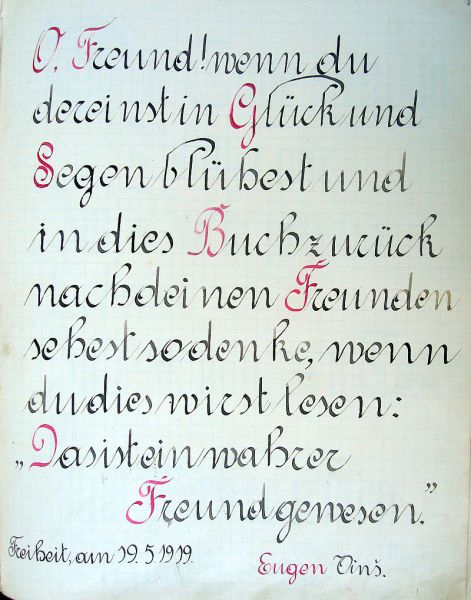 O, Freund! wenn du
dereinst in Glück und
Segen blühest und
in dies Buch zurück
nach deinen Freunden
sehest so denke, wenn
du dies wirst lesen:
„Das ist ein wahrer
Freund gewesen."
Freiheit, am 19. 5. 1919.
Eugen Vinš.